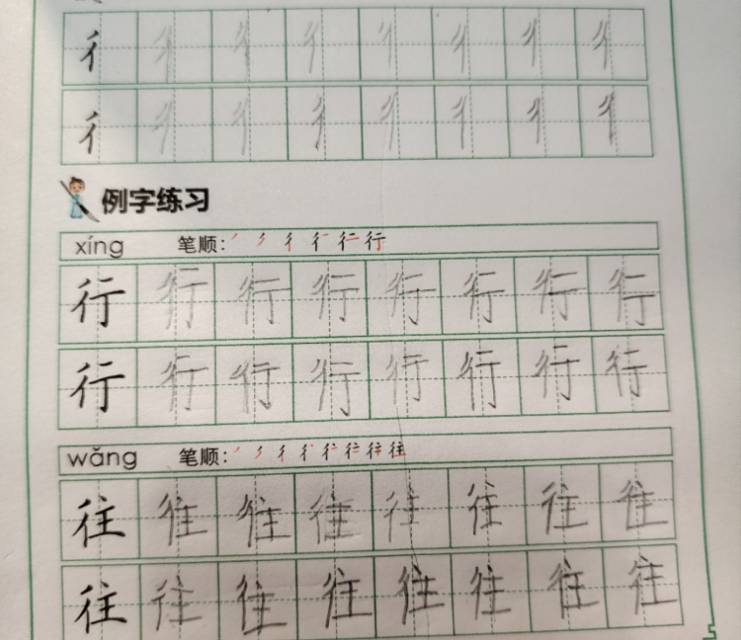 彳 彳 彳 彳 彳 彳 彳 彳
彳 彳 彳 彳 彳 彳 彳 彳
例字练习
xíng 笔顺: 丿 丿 彳 彳 行 行
行 行 行 行 行 行 行 行
行 行 行 行 行 行 行 行
wǎng 笔顺:
往 往 往 往 往 往 往 往
往 往 往 往 往 往 往 往